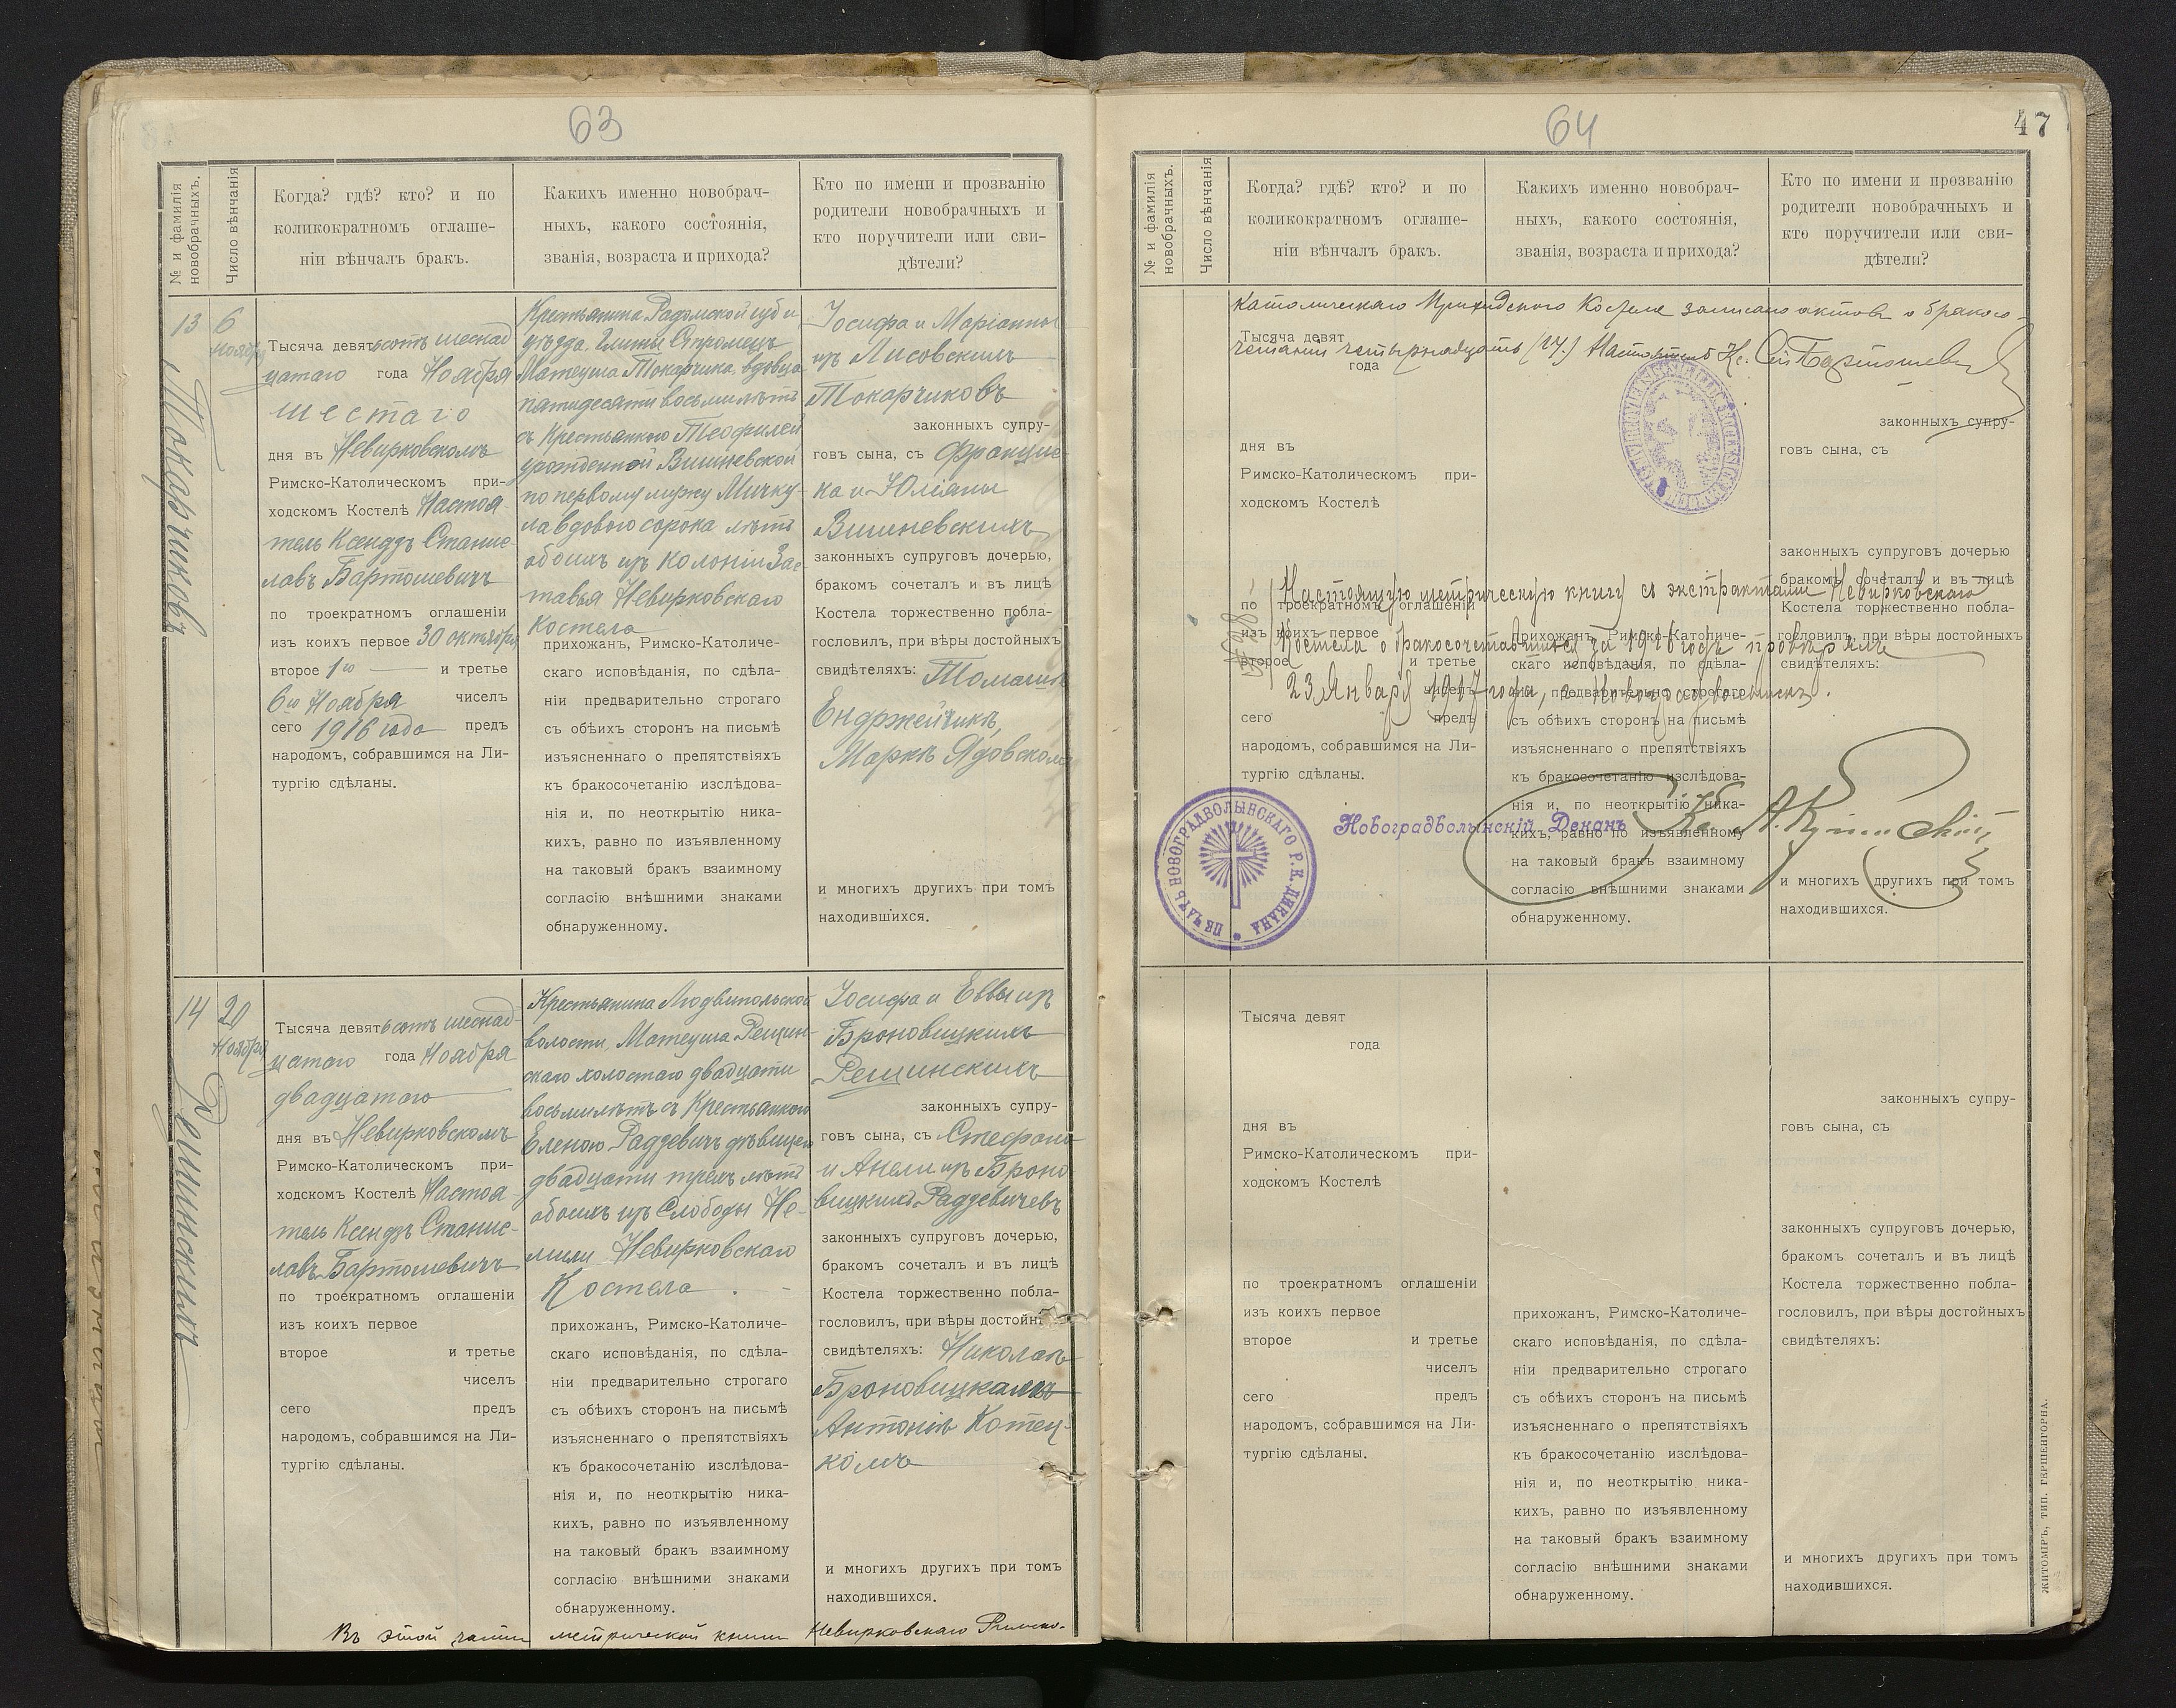 63
№ и фамилія новобрачныхъ.
Число вѣнчанія
Когда? гдѣ? кто? и по
коликократномъ оглаше-
ніи вѣнчалъ бракъ.
Какихъ именно новобрач-
ныхъ, какого состоянія,
званія, возраста и прихода?
Кто по имени и прозванію
родители новобрачныхъ и
кто поручители или сви-
дѣтели?
13
Токарчиковъ
6
ноября
Тысяча девятьсотъ шеснад
цатаго года Ноября
шестаго
дня въ Невирковскомъ
Римско-Католическомъ при-
ходскомъ Костелѣ Настоя-
тель Ксендзъ Станис-
лавъ Бартошевичъ
по троекратномъ оглашеніи
изъ коихъ первое 30 октября
второе 1го и третье
6го Ноября чиселъ
сего 1916 года предъ
народомъ, собравшимся на Ли-
тургію сдѣланы.
Крестьянина Радомской губ и
уѣзда, Гмины
Матеуша Токарчика, вдовца
пятидесяти восьми лѣтъ
съ Крестьянкою Теофилею
урожденной Вишневской
по первому мужу Мичку-
ла вдовою сорока лѣтъ
обоихъ изъ Колоніи Зас-
тавья Невирковскаго
Костела
прихожанъ, Римско-Католиче-
скаго исповѣданія, по сдѣла-
ніи предварительно строгаго
съ обѣихъ сторонъ на письмѣ
изъясненнаго о препятствіяхъ
къ бракосочетанію изслѣдова-
нія и, по неоткрытію ника-
кихъ, равно по изъявленному
на таковый бракъ взаимному
согласію внѣшними знаками
обнаруженному.
Іосифа и Маріанны
изъ Лисовскихъ
Токарчиковъ
законныхъ супру-
говъ сына, съ Францис-
ка и Юліаны
Вишневскихъ
законныхъ супруговъ дочерью,
бракомъ сочеталъ и въ лицѣ
Костела торжественно побла-
гословилъ, при вѣры достойныхъ
свидѣтеляхъ: Томашѣ
Ендржейчикѣ,
Маркѣ Ядовскомъ
и многихъ другихъ при томъ
находившихся.
14
Рещинскихъ
20
Ноября
Тысяча девятьсотъ шеснад-
цатаго года Ноября
двадцатаго
дня въ Невирковскомъ
Римско-Католическомъ при-
ходскомъ Костелѣ Настоя-
тель Ксендзъ Станис-
лавъ Бартошевичъ
по троекратномъ оглашеніи
изъ коихъ первое
второе и третье
чиселъ
сего предъ
народомъ, собравшимся на Ли-
тургію сдѣланы.
Крестьянина Людвипольской
волости, Матеуша Рещин-
скаго холостаго двадцати
восьми лѣтъ съ Крестьянкою
Еленою Радзевичъ дѣвицею
двадцати трехъ лѣтъ
обоихъ изъ Слободы Не-
мили Невирковскаго
Костела.
прихожанъ, Римско-Католиче-
скаго исповѣданія, по сдѣла-
ніи предварительно строгаго
съ обѣихъ сторонъ на письмѣ
изъясненнаго о препятствіяхъ
къ бракосочетанію изслѣдова-
нія и, по неоткрытію ника-
кихъ, равно по изъявленному
на таковый бракъ взаимному
согласію внѣшними знаками
обнаруженному.
Іосифа и Еввы изъ
Броновицкихъ
Рещинскихъ
законныхъ супру-
говъ сына, съ Стефана
и Анели изъ Броно
вицкихъ Радзевичевъ
законныхъ супруговъ дочерью,
бракомъ сочеталъ и въ лицѣ
Костела торжественно побла-
гословилъ, при вѣры достойн
свидѣтеляхъ: Николаѣ
Броновицкамъ
Антоніѣ Котец-
комъ
и многихъ другихъ при томъ
находившихся.
Въ этой части метрической книги Невирковскаго Римско-
64
47
№ и фамилія новобрачныхъ.
Число вѣнчанія
Когда? гдѣ? кто? и по
коликократномъ оглаше-
ніи вѣнчалъ бракъ.
Какихъ именно новобрач-
ныхъ, какого состоянія,
званія, возраста и прихода?
Кто по имени и прозванію
родители новобрачныхъ и
кто поручители или сви-
дѣтели?
католическаго Приходского Костела записано актовъ о бракосо-
четании четырнадцать (14.) Настоятель Кс. Ст Бартошевич
Тысяча девят
года
дня въ
Римско-Католическомъ при-
ходскомъ Костелѣ
по троекратномъ оглашеніи
изъ коихъ первое
второе и третье
чиселъ
сего предъ
народомъ, собравшимся на Ли-
тургію сдѣланы.
Настоящую метрическую книгу съ экстрактами Невирковскаго
Костела о бракосочетавшихся за 1916 годъ провѣрялъ
23 Января 1917 года, г. Новоградволынскъ.
Новоградволынскій Деканъ
ПЕЧАТЬ НОВОГРАДВОЛЫНСКАГО Р. К. ДИКАНА
прихожанъ, Римско-Католиче-
скаго исповѣданія, по сдѣла-
ніи предварительно строгаго
съ обѣихъ сторонъ на письмѣ
изъясненнаго о препятствіяхъ
къ бракосочетанію изслѣдова-
нія и, по неоткрытію ника-
кихъ, равно по изъявленному
на таковый бракъ взаимному
согласію внѣшними знаками
обнаруженному.
законныхъ супру-
говъ сына, съ
законныхъ супруговъ дочерью
бракомъ сочеталъ и въ лицѣ
Костела торжественно побла-
гословилъ, при вѣры достойныхъ
свидѣтеляхъ:
и многихъ другихъ при томъ
находившихся.
Тысяча девят
года
дня въ
Римско-Католическомъ при-
ходскомъ Костелѣ
по троекратномъ оглашеніи
изъ коихъ первое
второе и третье
чиселъ
сего предъ
народомъ, собравшимся на Ли-
тургію сдѣланы.
прихожанъ, Римско-Католиче-
скаго исповѣданія, по сдѣла-
ніи предварительно строгаго
съ обѣихъ сторонъ на письмѣ
изъясненнаго о препятствіяхъ
къ бракосочетанію изслѣдова-
нія и, по неоткрытію ника-
кихъ, равно по изъявленному
на таковый бракъ взаимному
согласію внѣшними знаками
обнаруженному.
законныхъ супру-
говъ сына, съ
законныхъ супруговъ дочерью,
бракомъ сочеталъ и въ лицѣ
Костела торжественно побла-
гословилъ, при вѣры достойныхъ
свидѣтеляхъ:
и многихъ другихъ при томъ
находившихся.
ЖИТОМІРЪ, ТИП. ГЕРШЕНГОРНА.